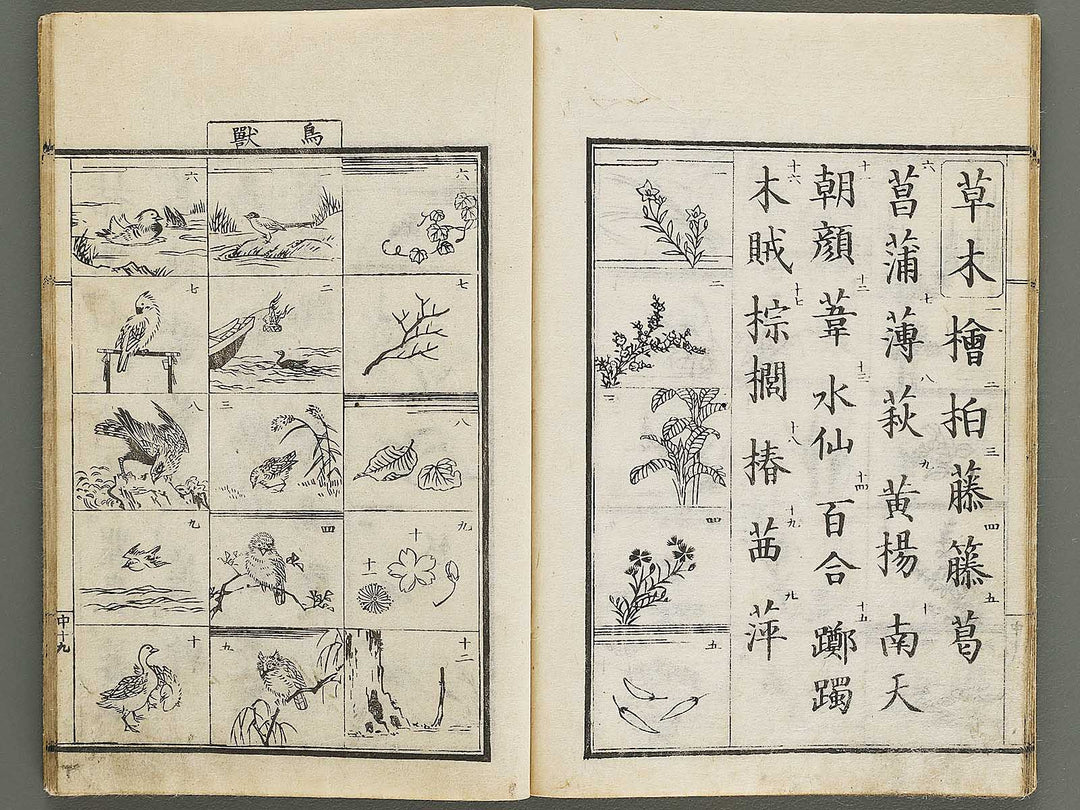 草木
檜 二柏 三藤 四籐 五葛
六菖蒲 七薄 八萩 九黄楊 十南天
十一朝顔 十二葦 十三水仙 十四百合 十五躑躅
十六木賊 十七棕櫚 十八椿 十九茜 萍
二
三
四
五
鳥獸
六
七
八
九
十
十一
十二
二
三
四
五
六
七
八
九
十
中十九